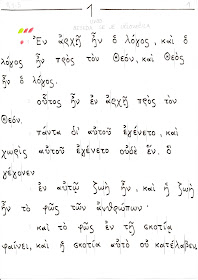 1
Ἐν ἀρχῇ ἦν ὁ λόγος, καὶ ὁ
λόγος ἦν πρὸς τὸν Θεόν, καὶ Θεὸς
ἦν ὁ λόγος.
οὗτος ἦν ἐν ἀρχῇ πρὸς τὸν
Θεόν.
πάντα δι' αὐτοῦ ἐγένετο, καὶ
χωρὶς αὐτοῦ ἐγένετο οὐδὲ ἕν. ὃ
γέγονεν
ἐν αὐτῷ ζωὴ ἦν, καὶ ἡ ζωὴ
ἦν τὸ φῶς τῶν ἀνθρώπων·
καὶ τὸ φῶς ἐν τῇ σκοτίᾳ
φαίνει, καὶ ἡ σκοτία αὐτὸ οὐ κατέλαβεν.